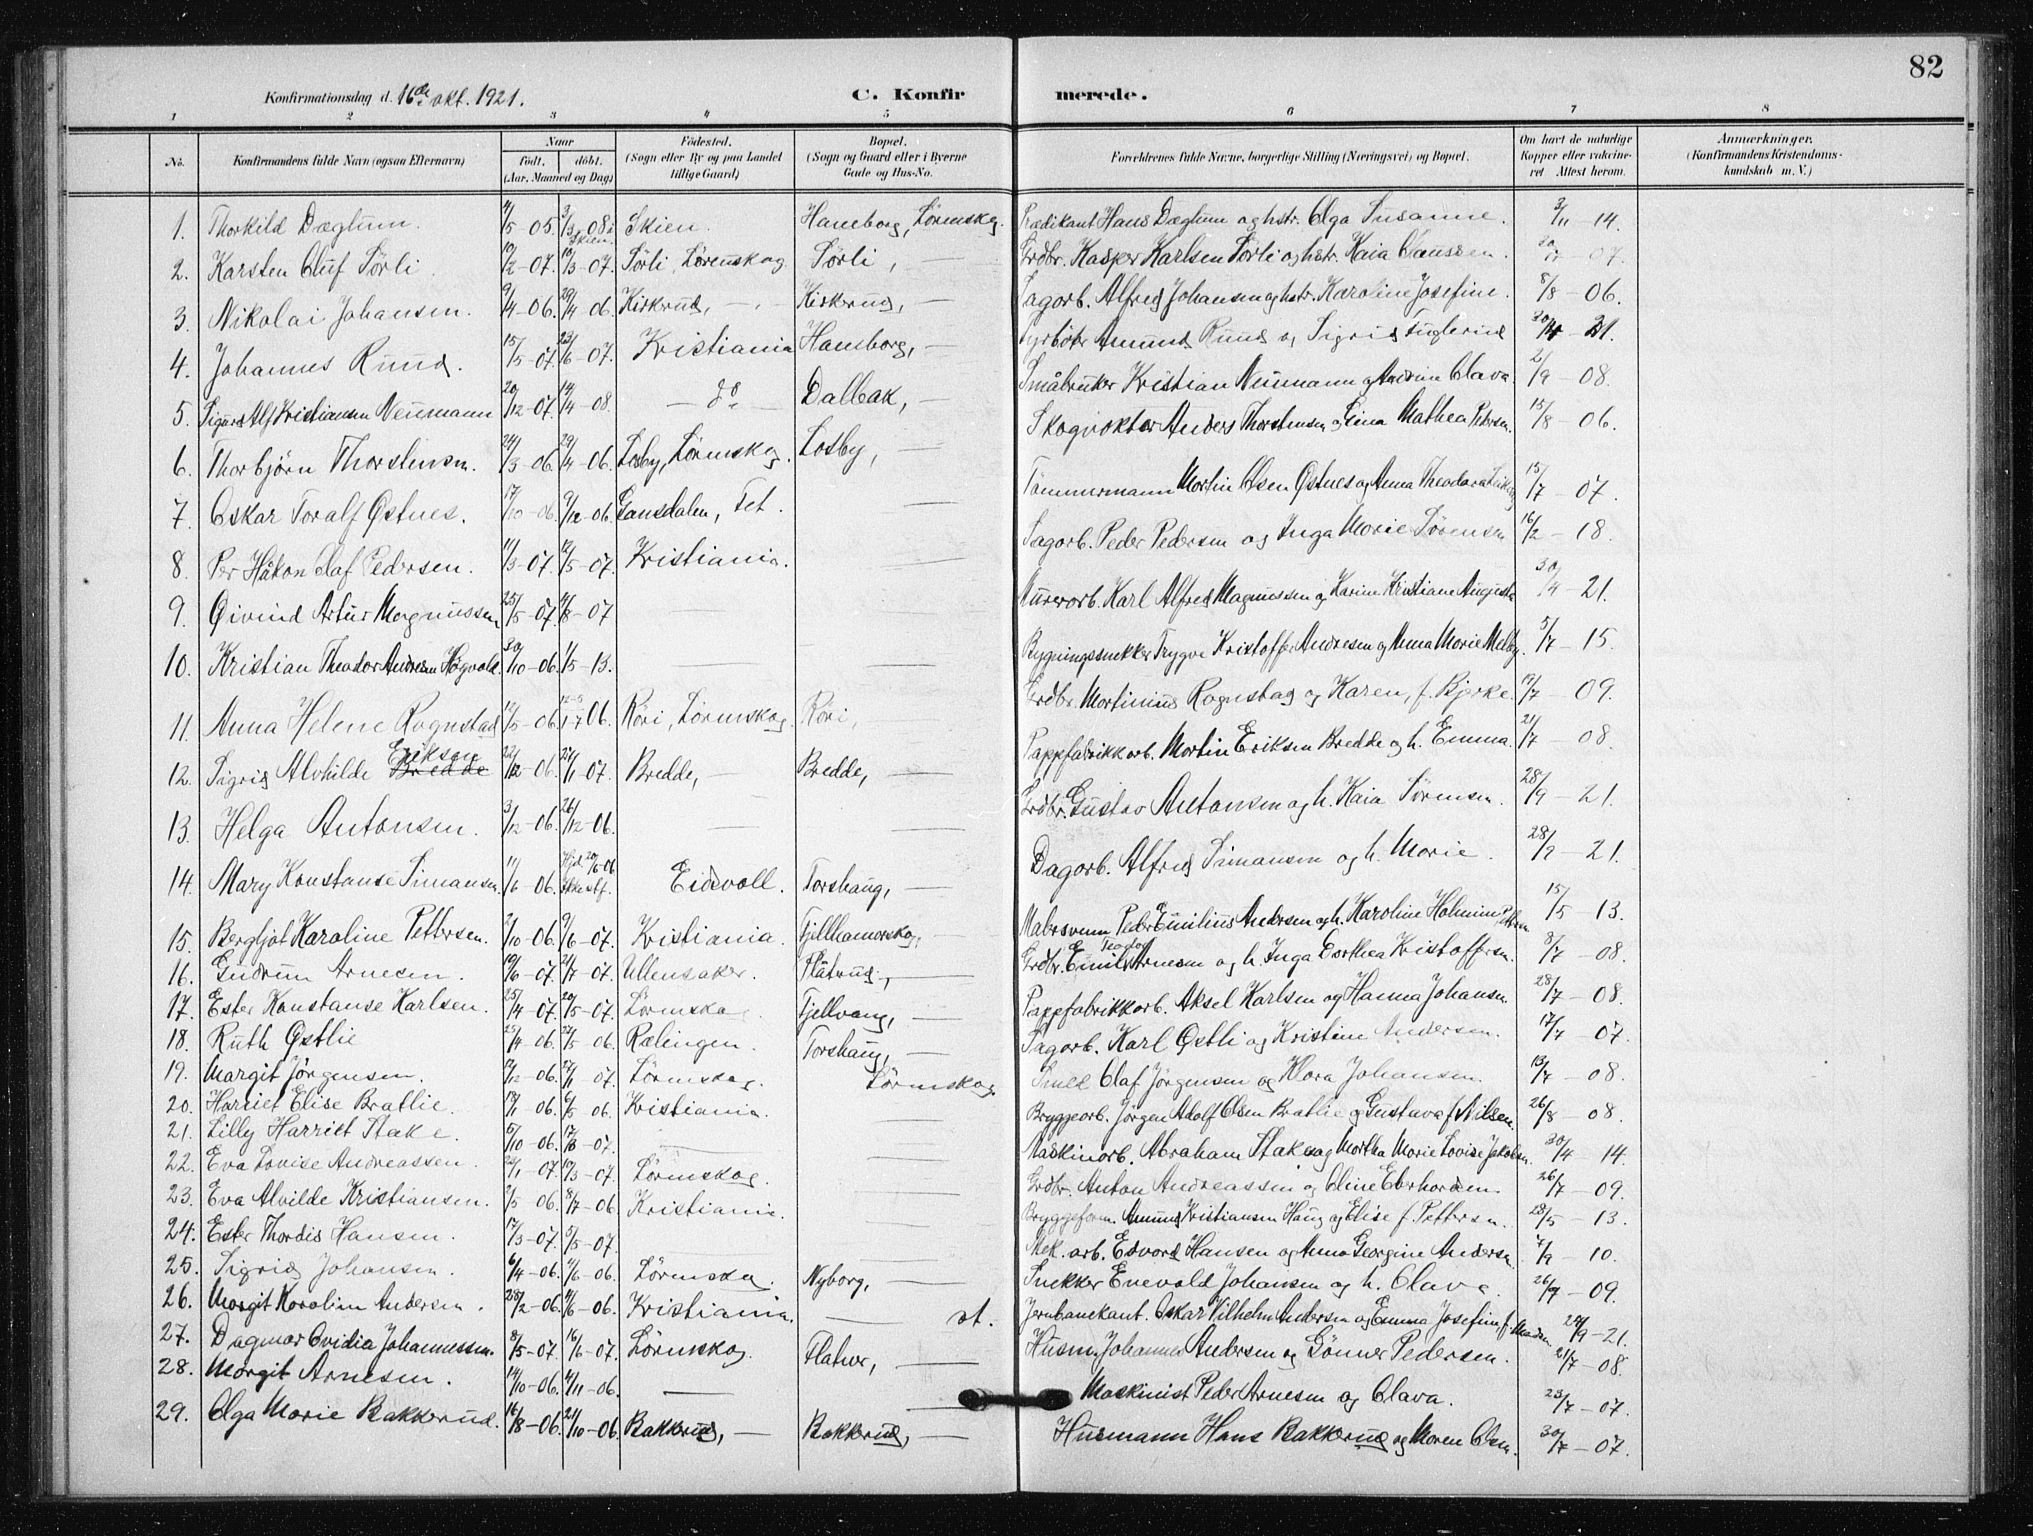 82
Konfirmationsdag d. 16de okt. 1921.
C. Konfir merede.
1 2 3 4 5 6 7 8
No. Konfirmandens fulde Navn (ogsaa Efternavn) Naar født. døbt. (Aar, Maaned og Dag) Fødested. (Sogn eller By og paa Landet tillige Gaard) Bopæl. (Sogn og Gaard eller i Byerne Gade og Hus-No. Forældrenes fulde Navne, borgerlige Stilling (Næringsvei) og Bopæl. Om havt de naturlige Kopper eller vakcineret Attest herom. Anmærkninger. (Konfirmandens Kristendomskundskab m. V.)
1. Thorkild Dæglum. 4/5 05. 3/3 08 i Skien. Skien. Haneborg, Lörenskog. Prædikant Hans Dæglum og hstr. Olga Susanne. 3/11 - 14.
2. Karsten Oluf Sörli 10/2 - 07. 10/3 - 07. Sörli, Lörenskog Sörli, — Grdbr. Kasper Karlsen Sörli og hstr. Kaia Claussen. 07.
3. Nikolai Johansen. 9/4 - 06. 29/4 06. Kirkerud, — Kirkerud, — Sagarb. Alfred Johansen og hstr. Karoline Josefine. 8/8 - 06.
4. Johannes Ruud. 15/5 - 07. 23/6 - 07. Kristiania Haneborg, — Fyrböter Amund Ruud og Sigrid Fuglerud 21.
5. Sigurd Alf Kristiansen Neumann 20/12 - 07. 14/4 - 08. — do — Dalbak, — Småbruker Kristian Neumann og Olava. 2/9 - 08.
6. Thorbjörn Thorstensen. 24/3 - 06. 29/4 - 06. Losby, Lörenskog. Losby, — Skogvokter Anders Thorstensen og Lina Mathea Petersen. 15/8 - 06.
7. Oskar Toralf Østnes. 17/10 - 06. 9/12 - 06. Gansdalen, Fet. — Tömmermann Martin Olsen Østnes og Anna Theodora 15/7 - 07.
8. Per Håkon Olaf Pedersen. 11/3 - 07. 12/5 - 07. Kristiania. — Sagarb. Peder Pedersen og Inga Marie Sörensen 16/2 - 18.
9. Øivind Artur Magnussen 25/5 - 07. 4/8 - 07 — — Murerarb. Karl Alfred Magnussen og Karin Kristiane Augusta 30/4 - 21.
10. Kristian Theodor Andresen Högvold. 30/10 - 06. 1/5 - 13. — — Bygningssnekker Trygve Kristoffer Andresen og Anna Marie Melby. 5/7 - 15.
11. Anna Helene Rognstad 12/5 - 06. 17 06. Röri, Lörenskog Röri, Grdbr. Martinius Rognstad og Karen, f. Bjerke. 17/7 - 09.
12. Sigrid Alvhilde Eriksen Bredde 22/12 - 06. 27/1 07. Bredde, — Bredde, — Pappfabrikkarb. Martin Eriksen Bredde og h. Emma. 21/7 - 08.
13. Helga Antonsen. 3/12 - 06. 26/12 - 06. — — Grdbr. Gustav Antonsen og h. Kaia Sörensen. 28/9 - 21.
14. Mary Konstanse Simansen. 11/6 06. Hjd. 20/6 06 Eidsvoll. Torshaug, — Dagarb. Alfred Simansen og h. Marie. 28/9 - 21.
15. Bergljot Karoline Pettersen. 2/10 - 06. 9/6 - 07. Kristiania. Fjellhamarskog, — Malersvenn Peder Emilius Andersen og h. Karoline Pettersen 15/5 - 13.
16. Gudrun Arnesen. 19/6 - 07. 21/7 - 07. Ullensaker. Flåtrud, — Grdbr. Emil Teodor Arnesen og h. Inga Dorthea Kristoffersen. 8/7 - 08.
17. Ester Konstanse Karlsen. 25/4 07. 20/5 - 07. Lörenskog. Fjellvang, — Pappfabrikkarb. Aksel Karlsen og Hanna Johansen. 28/7 - 08.
18. Ruth Østlie 25/4 06. 27/5 06. Rælingen. Torshaug, — Sagarb. Karl Østli og Kristine Andersen. 17/7 - 07.
19. Margit Jörgensen. 17/12 - 06. 07. Lörenskog. Lörenskog Smed Olaf Jörgensen og Klara Johansen. 13/7 - 08.
20. Harriet Elise Bratlie. 19/1 06. 6/5 06. Kristiania. Bryggearb. Jörgen Adolf Olsen Bratlie og Gustava f. Nilsen. 26/8 - 08.
21. Lilly Harriet Stake. 5/10 - 06. 17/3 - 07. — Maskinarb. Abraham Stake og Martha Marie Lovise Jakobsen. 30/4 - 14.
22. Eva Lovise Andreassen. 07. 10/3 - 07. Lörenskog. Grdbr. Anton Andreassen og Oline Eberhardsen. 26/7 - 09.
23. Eva Alvilde Kristiansen. 2/5 06. 8/7 - 06. Kristiania. Bryggeform. Amund Kristiansen Haug og Elise f. Pettersen. 23/5 - 13.
24. Ester Thordis Hansen. 17/3 - 07. 5/5 - 07. — Mek. arb. Edvard Hansen og Anna Georgine Andersen. 10.
25. Sigrid Johansen. 6/4 - 06. 4/6 - 06. Lörenskog. Nyborg, — Snekker Enevald Johansen og h. Olava. 26/7 - 09.
26. Margit Karoline Andersen. 28/2 - 06. 4/6 - 06. Kristiania. — st. Jernbanekont. Oskar Vilhelm Andersen og Emma Josefine, f. Madsen. 21.
27. Dagmar Ovidia Johannessen. 8/5 - 07. 16/6 - 07. Lörenskog. Flatner, — Husm. Johannes Andersen og Gönner Pedersen. 21/7 - 08.
28. Margit Arnesen. 14/10 - 06. 4/11 - 06. — — Maskinist Peder Arnesen og Olava. 23/7 - 07.
29. Olga Marie Bakkerud. 16/8 - 06. 21/10 - 06. Bakkerud, — Bakkerud, — Husmann Hans Bakkerud og Maren Olsen. 30/7 - 07.